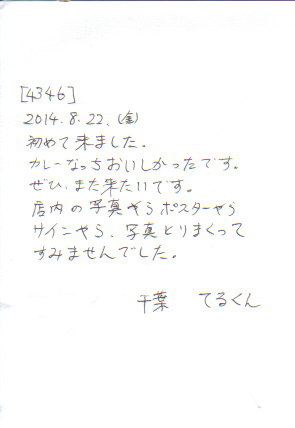 [4346]
2014.8.22.(金)
初めて来ました。
カレーなっちおいしかったです。
ぜひ、また来たいです。
店内の写真やらポスターやら
サインやら、写真とりまくって
すみませんでした。
千葉 てるくん